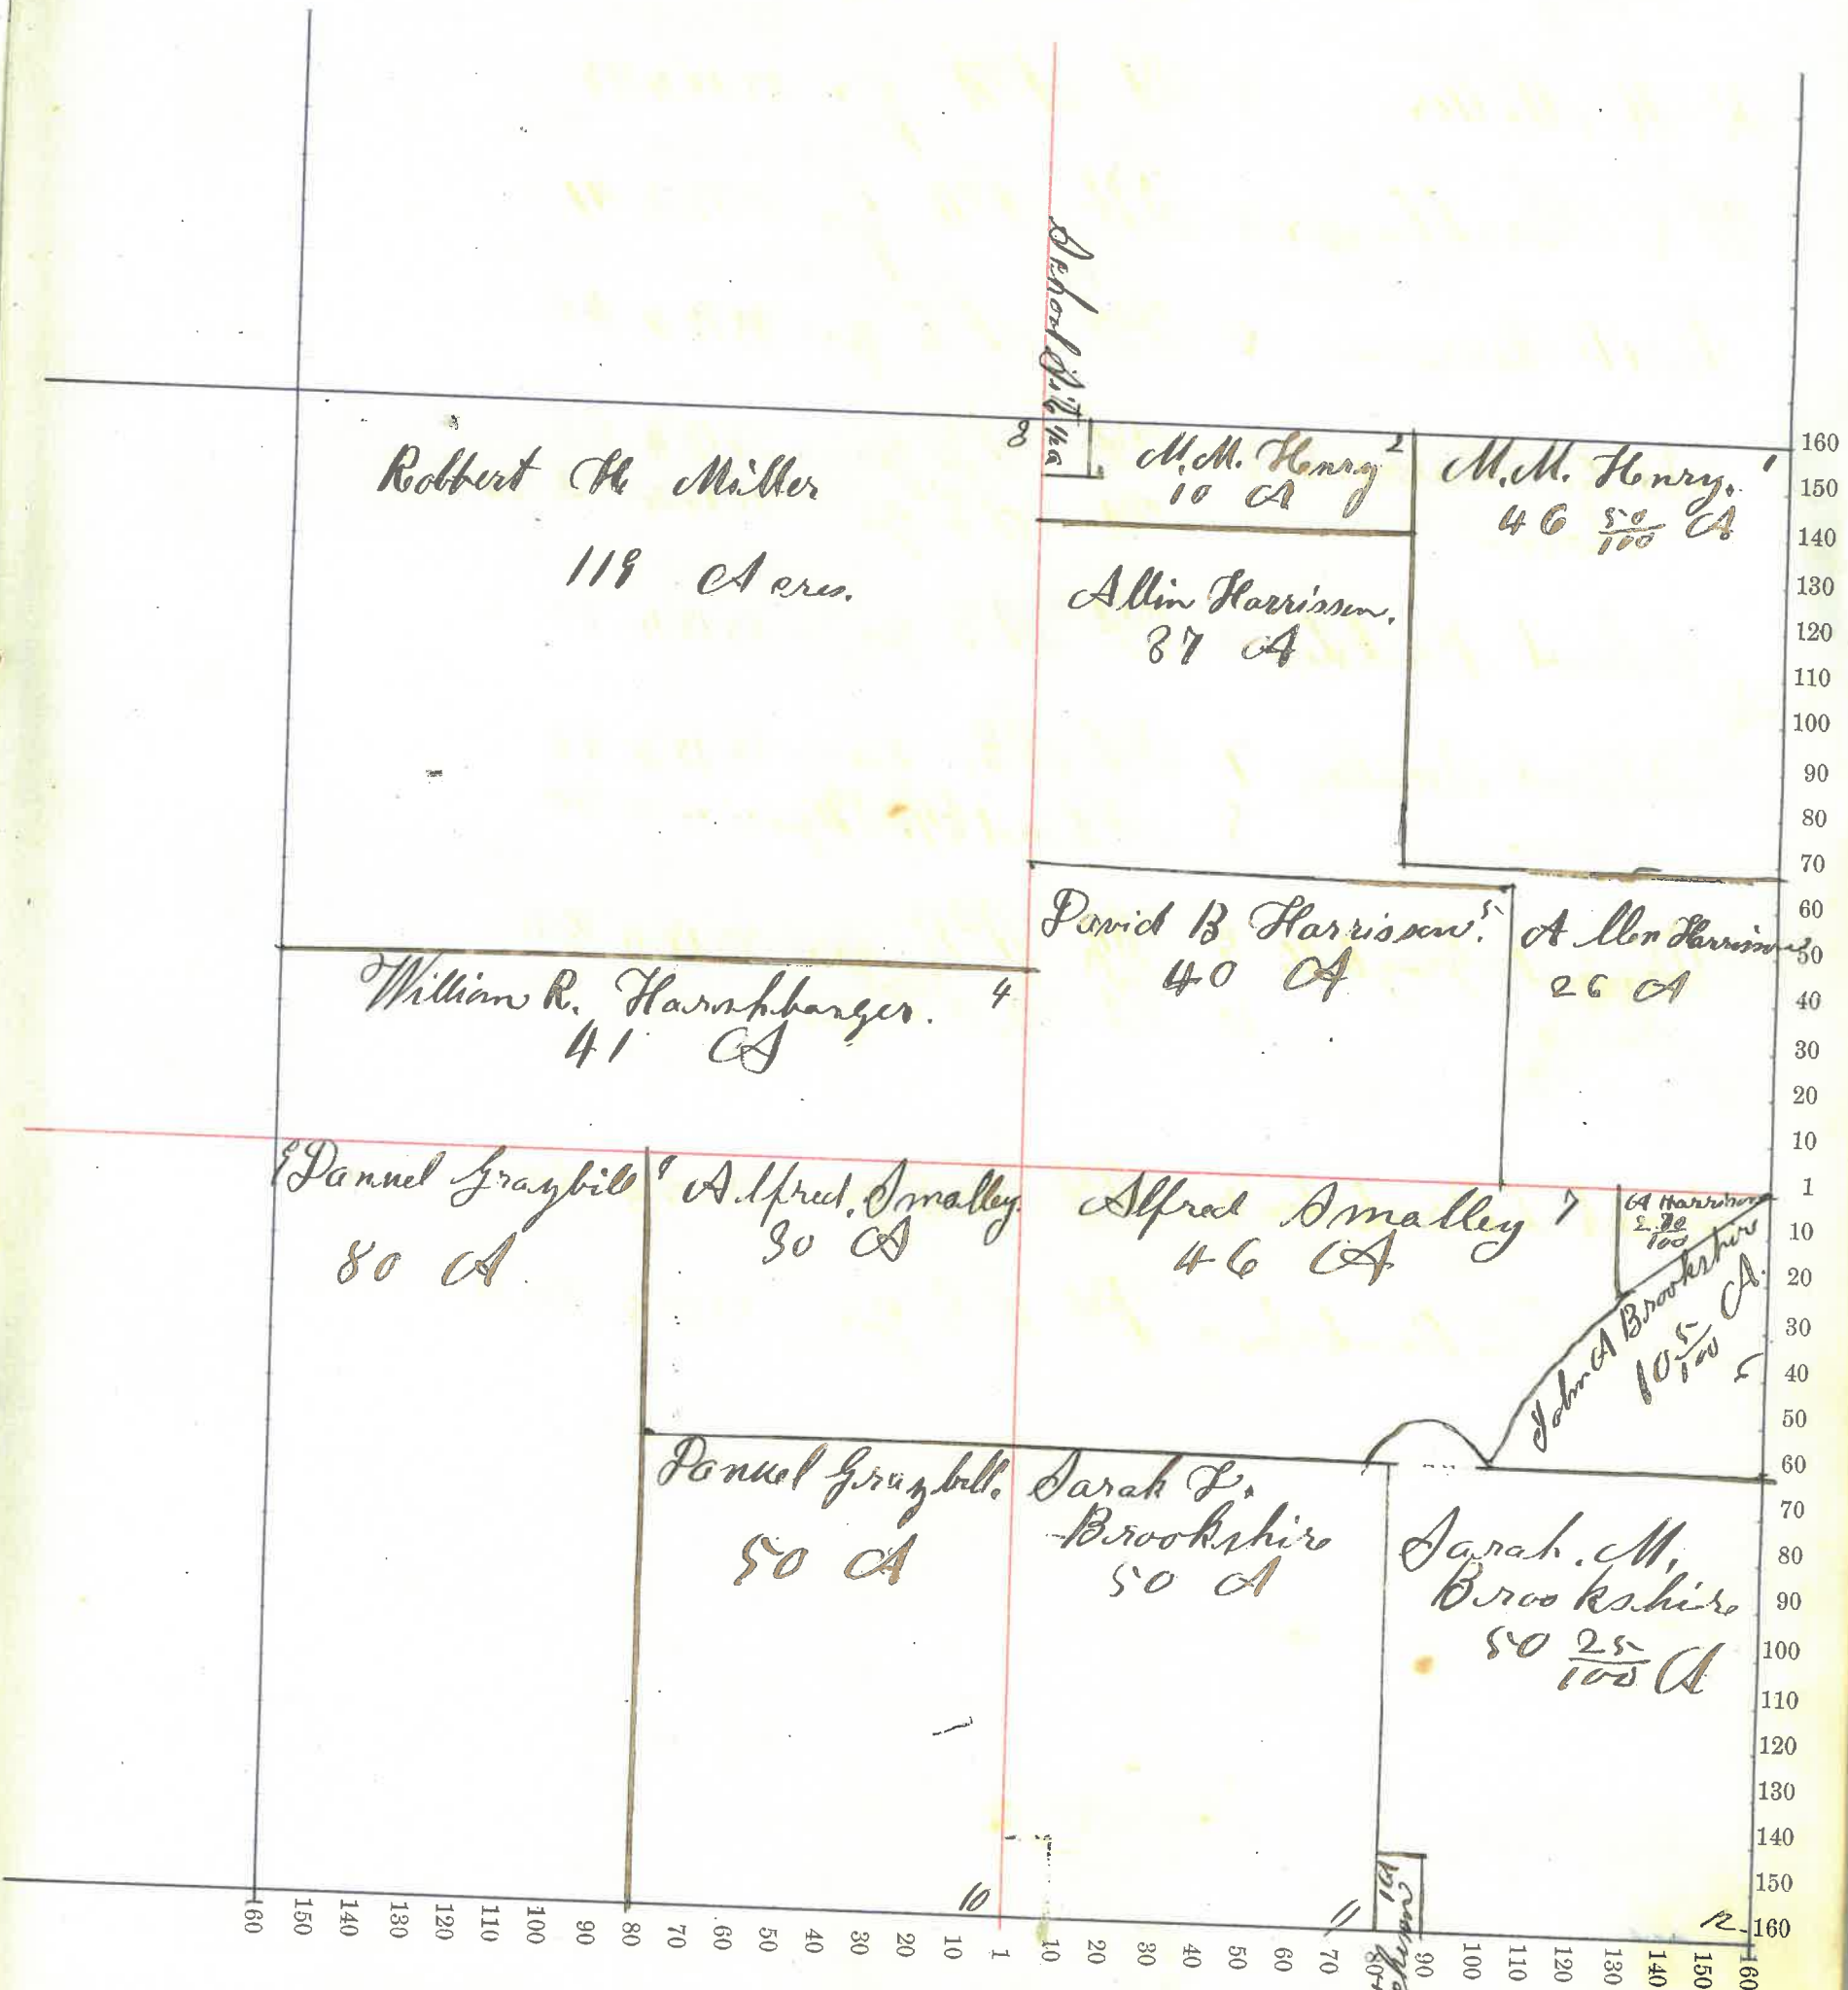 School Site
1/2 a
3
M.M. Henry 2
10 A
M.M. Henry. 1
46 50/100 A
Robbert H Miller
119 Acres.
Allin Harrisson.
37 A
David B Harrisson. 5
40 A
Allen Harrison
26 A
William R. Harshbarger. 4
41 A
9 Danuel Graybill
80 A
Alfred. Smalley.
30 A
Alfred Smalley 7
46 A
A Harrison
2 70/100
John A Brookshire
10 5/100 A.
6
Danuel Graybill.
50 A
Sarah L.
Brookshire
50 A
Sarah. M.
Brookshire
50 25/100 A
10
11
12
160
150
140
130
120
110
100
90
80
70
60
50
40
30
20
10
1
10
20
30
40
50
60
70
80
90
100
110
120
130
140
150
160
160 150 140 130 120 110 100 90 80 70 60 50 40 30 20 10 1 10 20 30 40 50 60 70 80 90 100 110 120 130 140 150 160